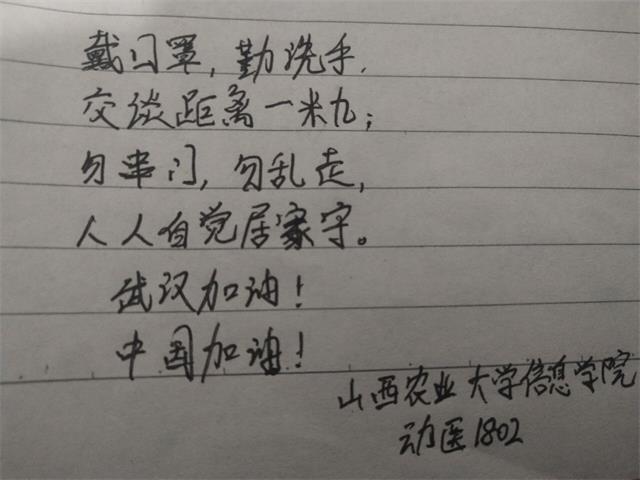 戴口罩，勤洗手，
交谈距离一米九；
勿串门，勿乱走，
人人自觉居家守。
武汉加油！
中国加油！
山西农业大学信息学院
动医1802